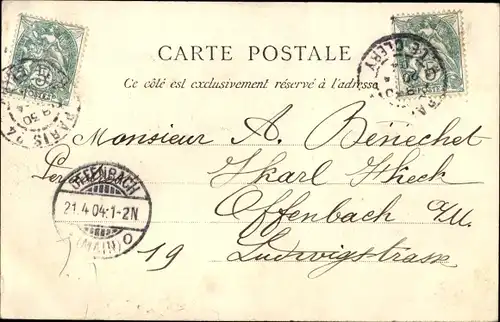 CARTE POSTALE
Ce côté est exclusivement réservé à l'adresse
Monsieur A. Bénechet
Offenbach a/M.
19 Ludwigstrasse
OFFENBACH
21.4.04.1-2N
(MAIN) o
PARIS